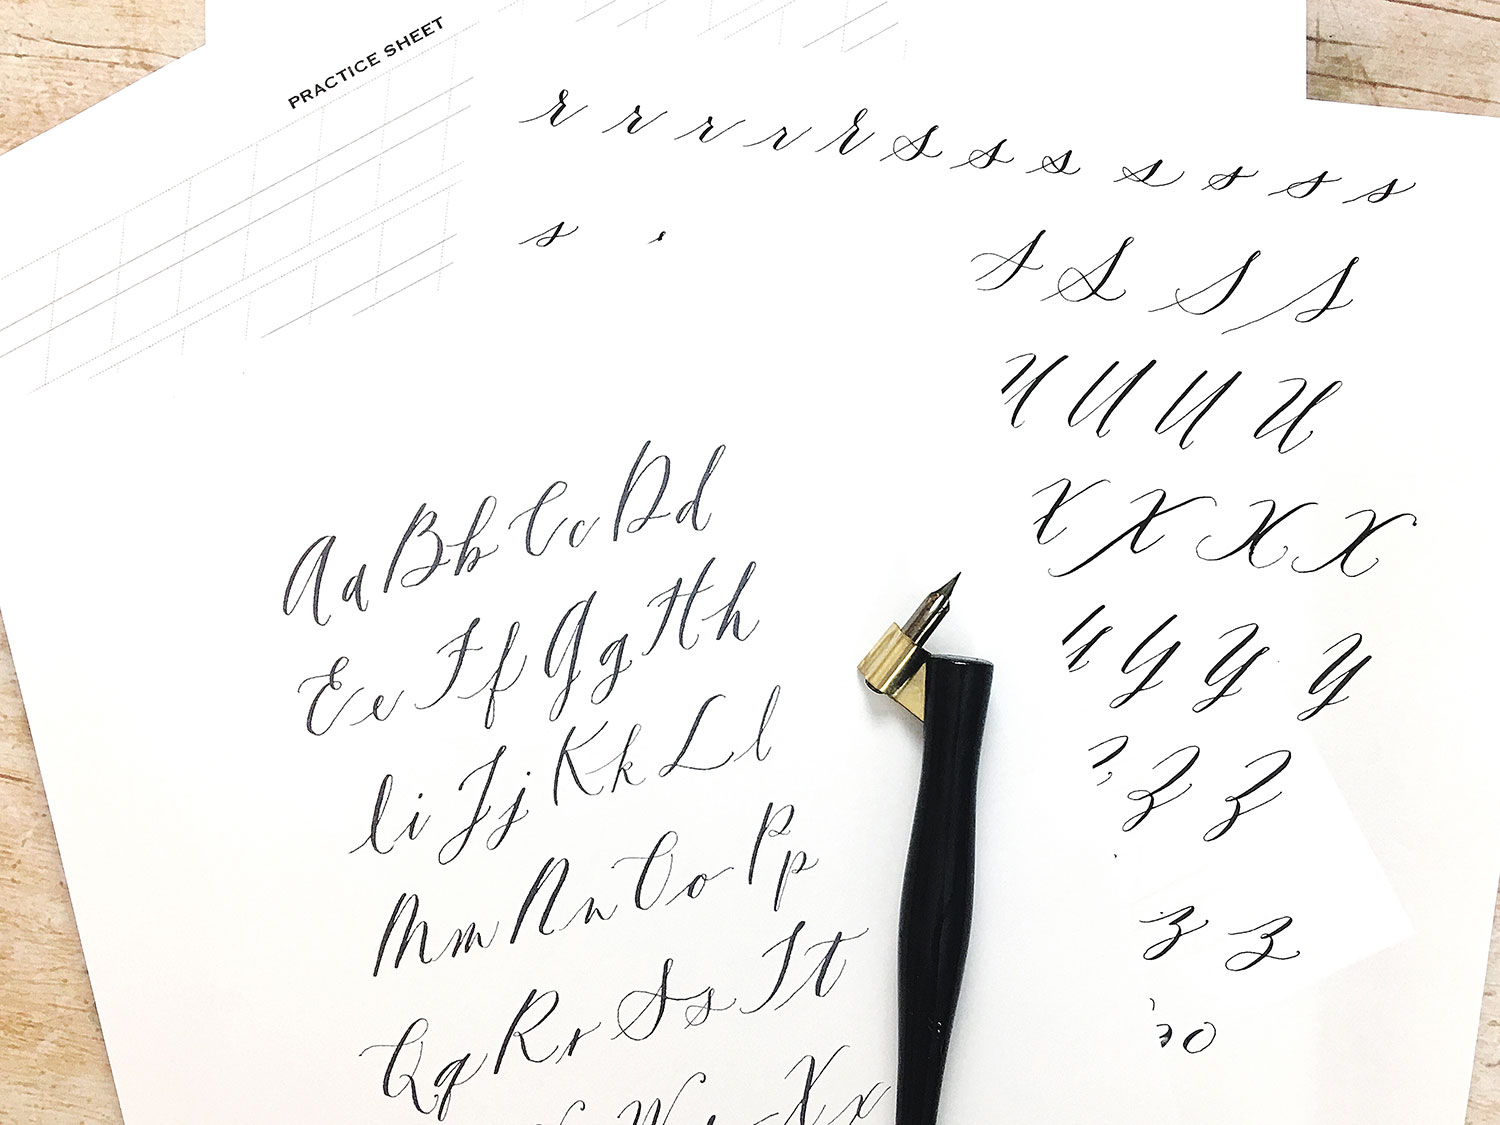 PRACTICE SHEET
r r r r r s s s s s s s
s
S S S S
U U U
X X X X
y y y
z z
z z
Aa Bb Cc Dd
Ee Ff Gg Hh
Ii Jj Kk Ll
Mm Nn Oo Pp
Qq Rr Ss Tt
Xx